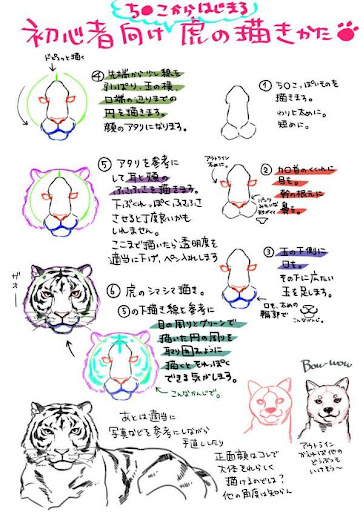 ち●こからはじまる
初心者向け 虎の描きかた
ドピュッと描く
④ 先端から少し線を
引っぱり、玉の横、
口端の辺りまでの
円を描きます。
顔のアタリになります。
① ちOこ、ぽいものを
描きます。
わりと太めに。
短めに。
⑤ アタリを参考に
して耳と頬の
ふさふさを描きます。
下ぶくれっぽくふさふさ
させると丁度良いかも
しれません。
ここまで描いたら透明度を
適当に下げ、ペン入れします
アウトライン
太めに。
② カO首のくくれに
目を。
幹の根元に
鼻を。
③ 玉の下側に
口を。
その下に広たい
玉を足します。
口を、ネコの
輪郭で
こんなかんじ。
ガオ
⑥ 虎のシマシマ描き。
⑤の下描き線を参考に
目の周りとグリーンで
描いた円の周りを
取り囲むように
描くとそれっぽく
できる気がします。
こんなかんじで。
Bow-wow
あとは適当に
写真などを参考にしながら
手直ししたり
正面顔はコレで
大体それらしく
描けるのでは?
他の角度は知らん
アウトライン
かえれば他の
どうぶつも
いけそう〜